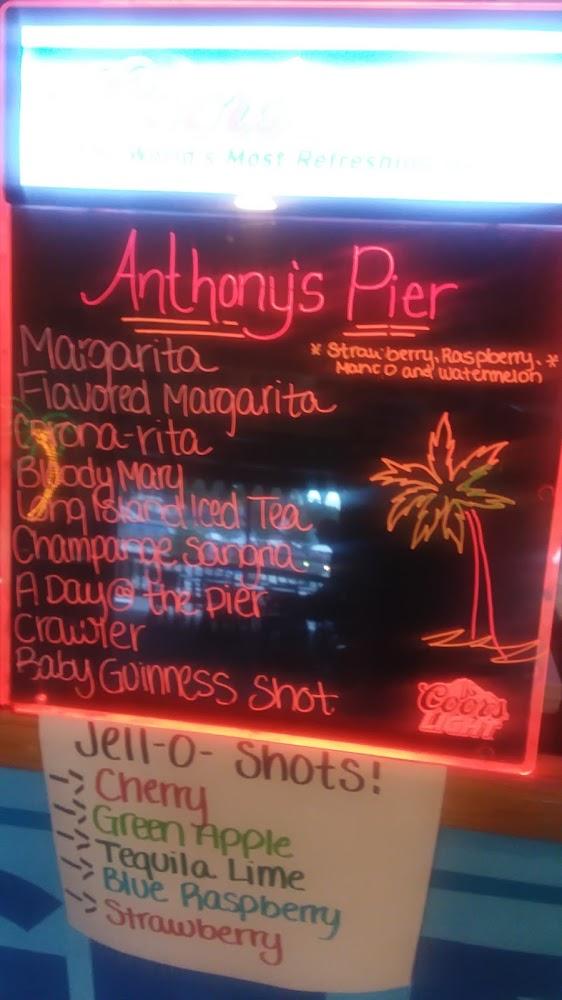 World's Most Refreshing
Anthony's Pier
Margarita
* Strawberry, Raspberry, *
Mango and Watermelon
Flavored Margarita
Corona-rita
Bloody Mary
Long Island Iced Tea
Champange Sangria
A Day @ the Pier
Crawler
Baby Guinness Shot
Coors
LIGHT
Jell-O- Shots!
Cherry
Green Apple
Tequila Lime
Blue Raspberry
Strawberry